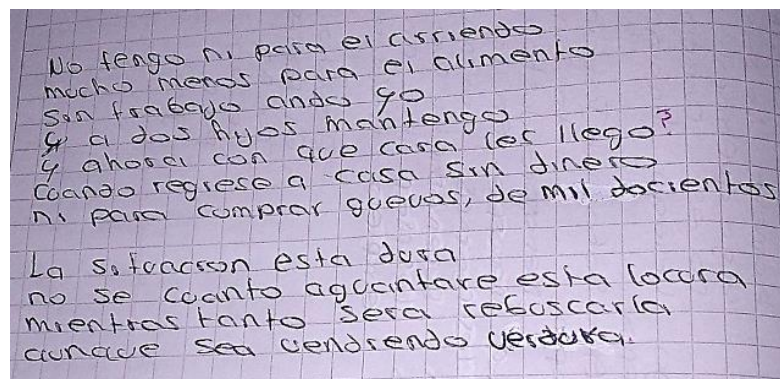 No tengo ni para el arriendo
mucho menos para el alimento
sin trabajo ando yo
y a dos hijos mantengo
y ahora con que cara les llego?
Cuando regrese a casa sin dinero
ni para comprar guevos, de mil docientos
La situacion esta dura
no se cuanto aguantare esta locura
mientras tanto sera rebuscarla
aunque sea vendiendo verdura.